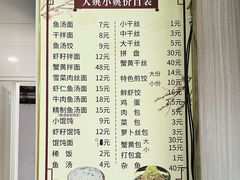 大娘小娘价目表
鱼汤面 7元
干拌面 8元
鱼汤饺 9元
虾籽拌面 12元
蟹黄拌面 48元
雪菜肉丝面 12元
虾仁鱼汤面 15元
牛肉鱼汤面 18元
精制鱼汤面 15元
小馄饨 9元
虾籽馄饨 12元
馄饨面 10元
稀饭 2元
鱼汤 4元
小干丝 1元
中干丝
大干丝 5元
拼盘 30元
蟹黄干丝 40元
特色煎饺 大份 小份
鲜虾饺
鸡蛋 2元
肉包
菜包
萝卜丝包 3元
蟹黄包 大 小
打包盒 1元
杂鱼 40元